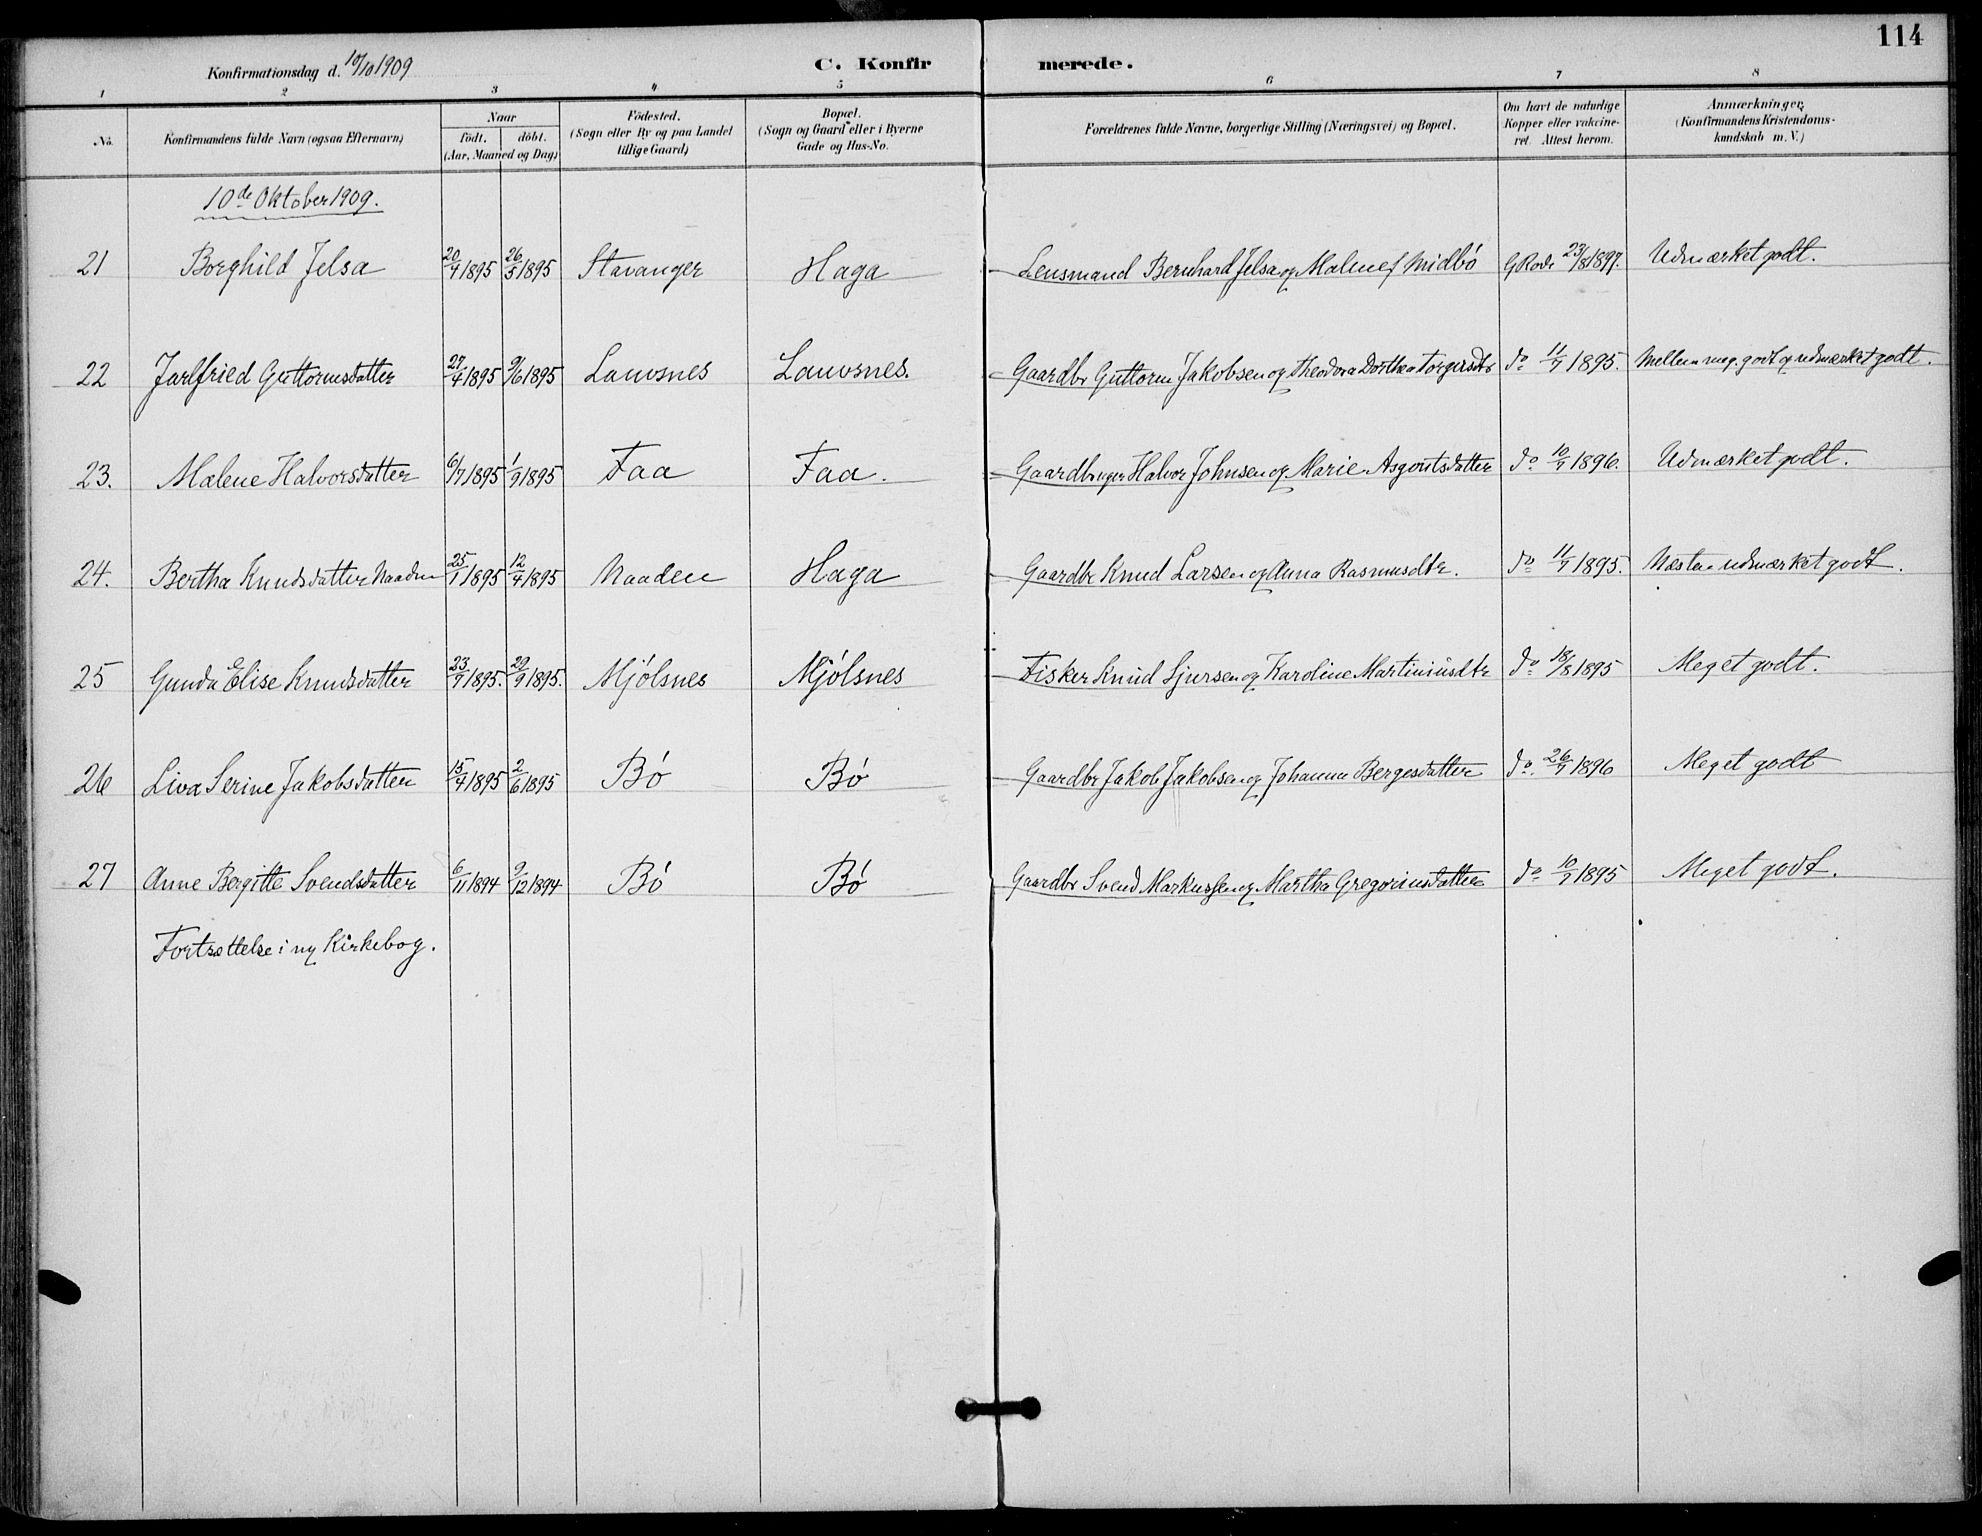 114
Konfirmationsdag d. 10/10 1909
C. Konfirmerede.
1 2 3 4 5 6 7 8
No.
Konfirmandens fulde Navn (ogsaa Efternavn)
Naar
født. døbt.
(Aar, Maaned og Dag)
Fødested.
(Sogn eller By og paa Landet
tillige Gaard)
Bopæl.
(Sogn og Gaard eller i Byerne
Gade og Hus-No.
Forældrenes fulde Navne, borgerlige Stilling (Næringsvei) og Bopæl.
Om havt de naturlige
Kopper eller vakcine-
ret. Attest herom.
Anmærkninger.
(Konfirmandens Kristendoms-
kundskab m. V.)
10de Oktober 1909.
21 Borghild Jelsa 20/4 1895 26/5 1895 Stavanger Haga Lensmand Bernhard Jelsa og Malene f Midbø G Rode 23/8 1897. Udmærket godt.
22 Jarlfried Guttormsdatter 27/4 1895 9/6 1895 Lauvsnes Lauvsnes. Gaardbr Guttorm Jakobsen og Theodora Dorthea Torgersdtr do 11/7 1895. Mellem meg. godt og udmærket godt.
23. Malene Halvorsdatter 6/7 1895 1/9 1895 Faa Faa. Gaardbruger Halvor Johnsen og Marie Asgoutsdatter do 10/7 1896. Udmærket godt.
24. Bertha Knudsdatter Naaden 25/1 1895 12/4 1895 Naaden Haga Gaardbr Knud Larsen og Anna Rasmusdtr. do 11/7 1895. Næsten udmærket godt.
25 Gunda Elise Knudsdatter 23/7 1895. 29/9 1895. Mjølsnes Mjølsnes Fisker Knud Sjursen og Karoline Martiniusdtr do 18/8 1895 Meget godt.
26 Liva Serine Jakobsdatter 15/4 1895 2/6 1895 Bø Bø Gaardbr Jakob Jakobsen og Johanna Bergesdatter do. 26/7 1896 Meget godt
27 Anne Bergitte Svendsdatter 6/11 1894 9/12 1894 Bø Bø Gaardbr Svend Markussen og Martha Gregoriusdatter do 10/7 1895 Meget godt.
Fortsættelse i ny Kirkebog.